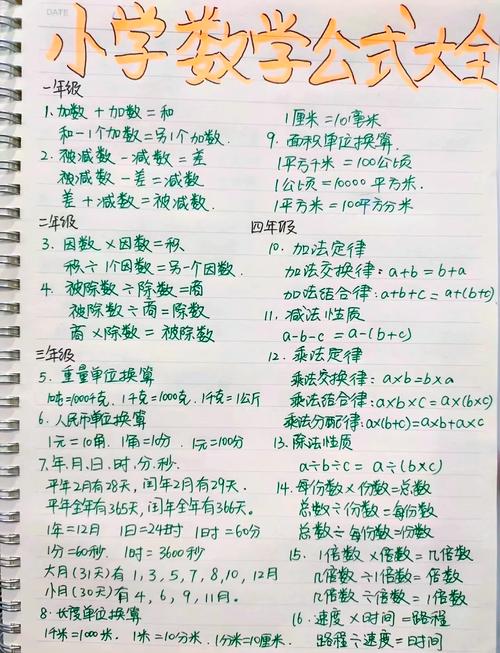 DATE
小学数学公式大全
一年级
1. 加数 + 加数 = 和
和 - 1个加数 = 另1个加数.
2. 被减数 - 减数 = 差
被减数 - 差 = 减数
差 + 减数 = 被减数.
二年级
3. 因数 × 因数 = 积
积 ÷ 1个因数 = 另一个因数.
4. 被除数 ÷ 除数 = 商
被除数 ÷ 商 = 除数
商 × 除数 = 被除数
三年级
5. 重量单位换算
1吨=1000千克. 1千克=1000克. 1千克=1公斤
6. 人民币单位换算
1元=10角. 1角=10分. 1元=100分
7. 年.月.日.时.分.秒.
平年2月有28天, 闰年2月有29天.
平年全年有365天, 闰年全年有366天.
1年=12月 1日=24时 1时=60分
1分=60秒. 1时=3600秒
大月(31天)有1,3,5,7,8,10,12月
小月(30天)有4,6,9,11月.
8. 长度单位换算
1千米=1000米. 1米=10分米. 1分米=10厘米.
1厘米=10毫米
9. 面积单位换算.
1平方千米=100公顷
1公顷=10000平方米.
1平方米=100平方分米
四年级
10. 加法定律
加法交换律: a+b=b+a
加法结合律: a+b+c=a+(b+c)
11. 减法性质
a-b-c=a-(b+c)
12. 乘法定律
乘法交换律: a×b=b×a
乘法结合律: a×b×c=a×(b×c)
乘法分配律: a×(b+c)=a×b+a×c
13. 除法性质
a÷b÷c=a÷(b×c)
14. 每份数×份数=总数
总数÷份数=每份数
总数÷每份数=份数
15. 1倍数×倍数=几倍数
几倍数÷1倍数=倍数
几倍数÷倍数=1倍数
16. 速度×时间=路程
路程÷速度=时间